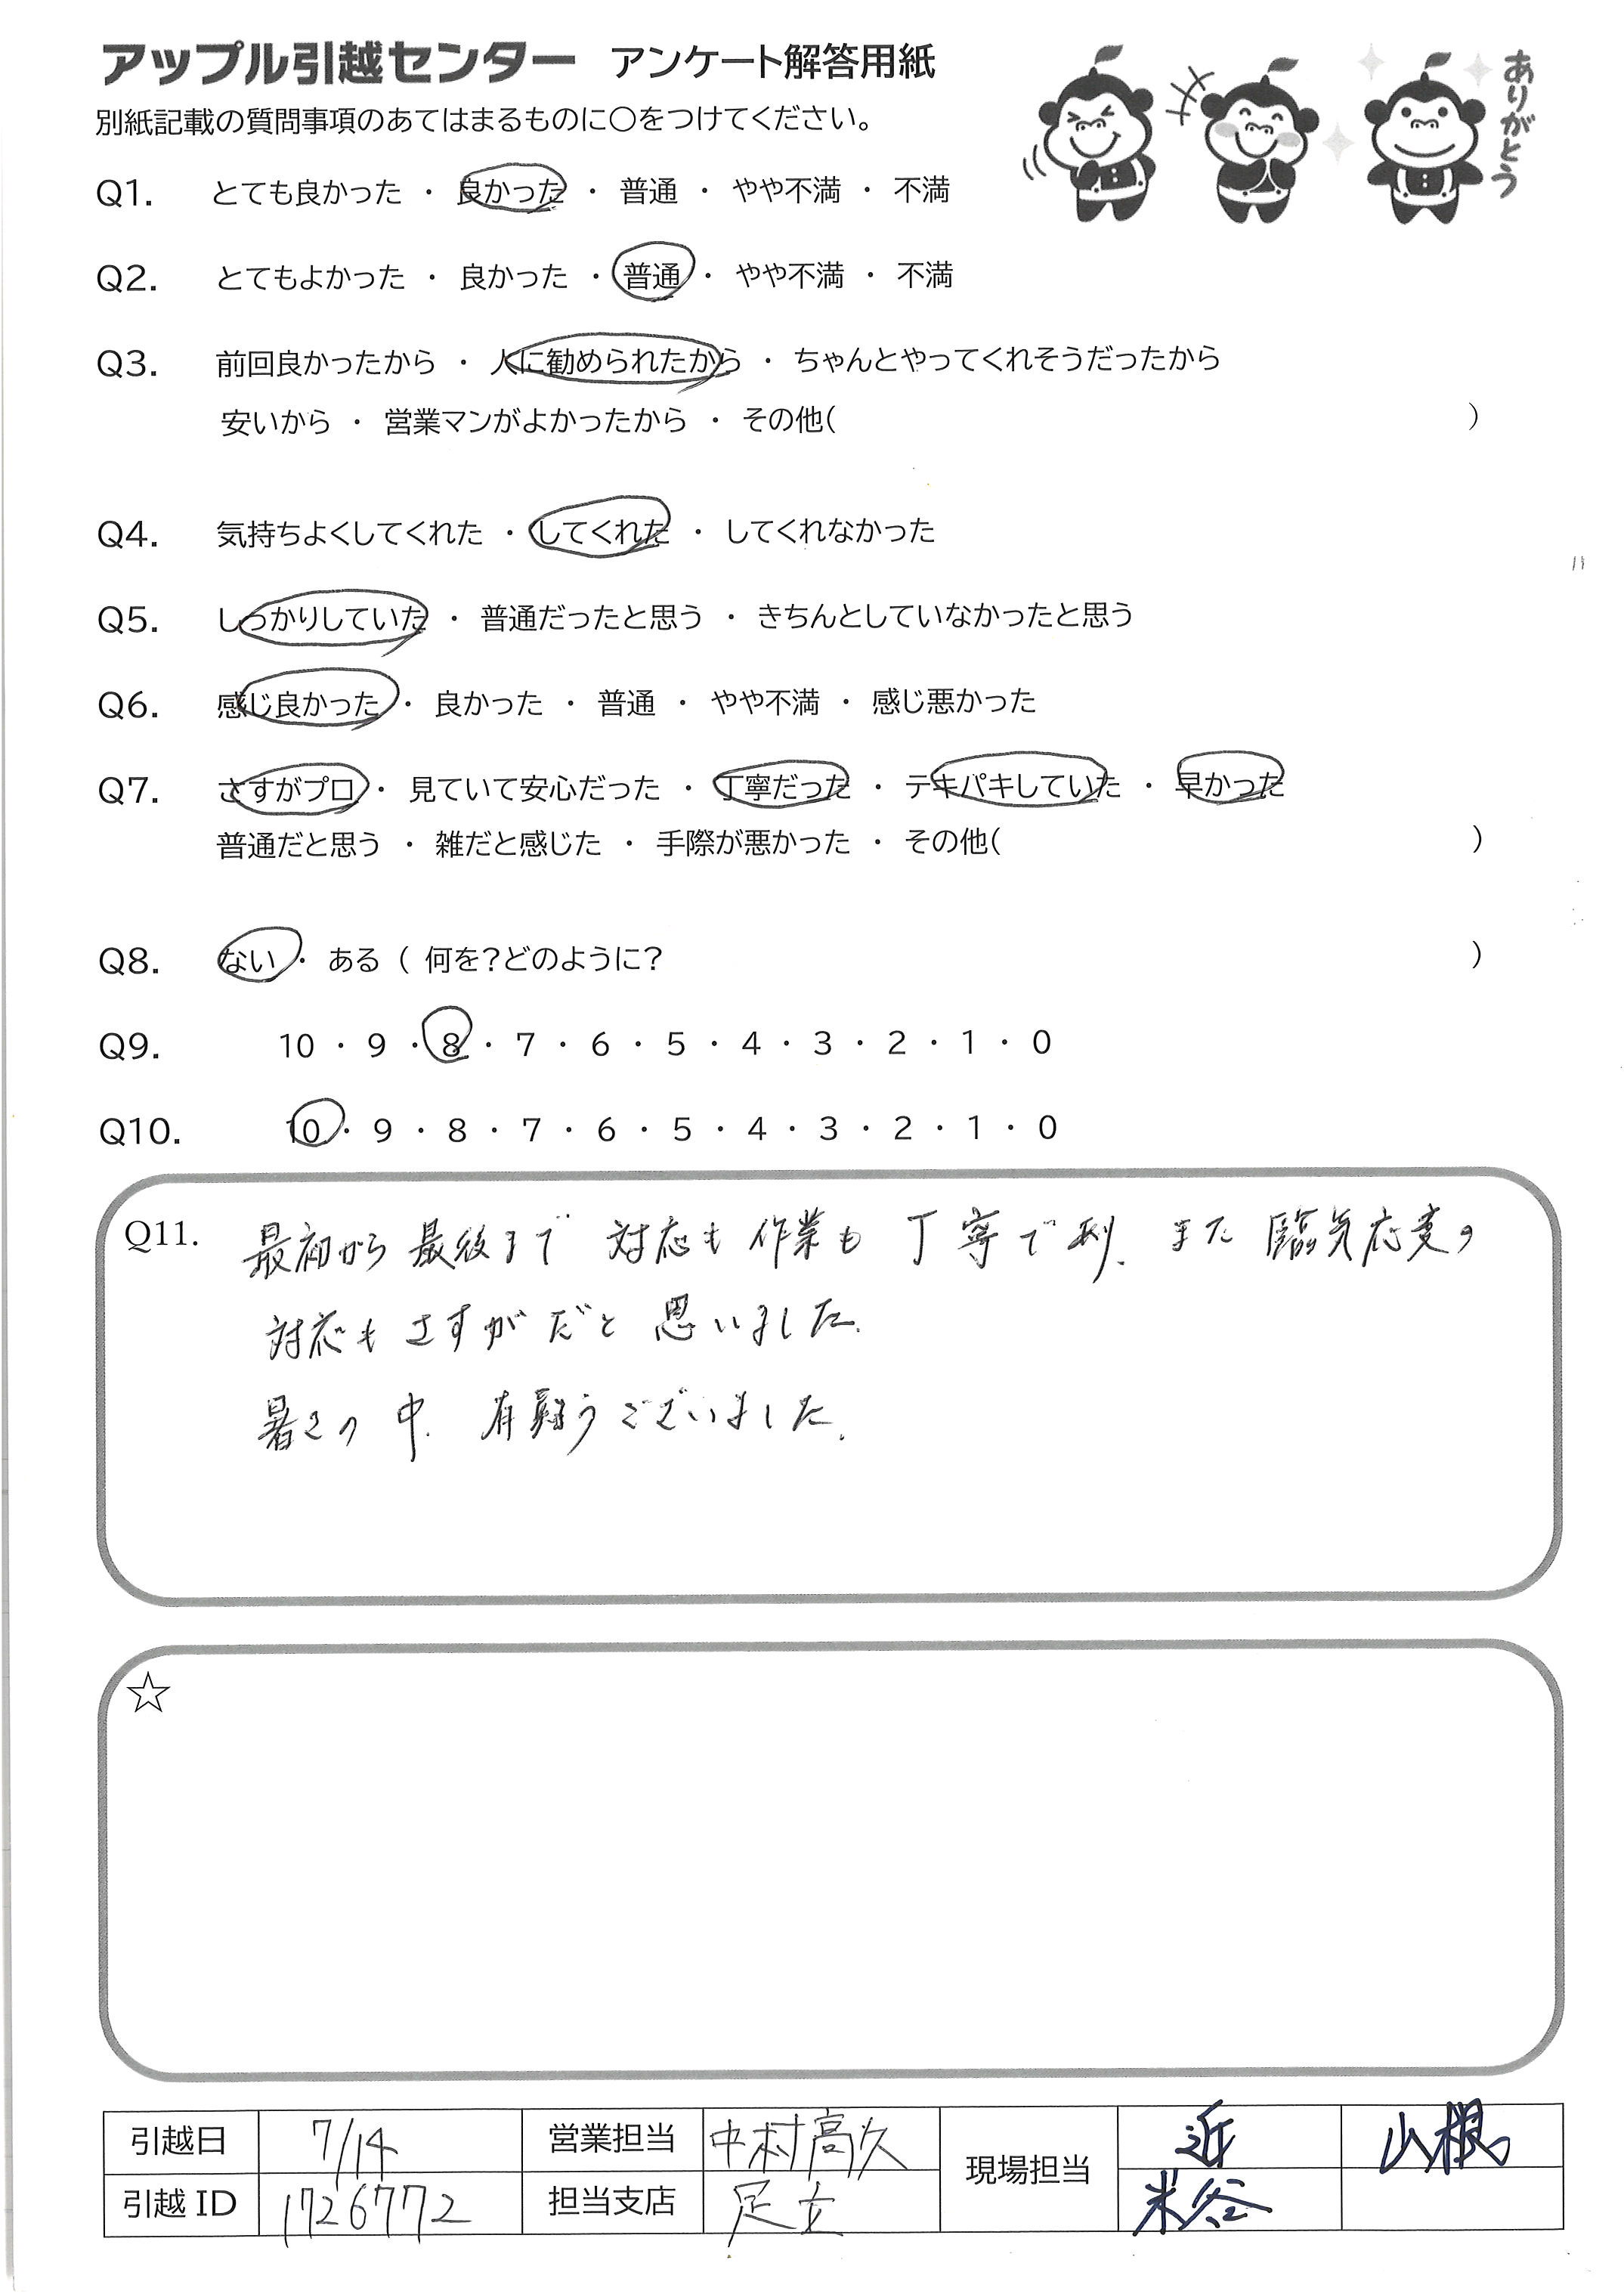 アップル引越センター アンケート解答用紙
ありがとう
別紙記載の質問事項のあてはまるものに○をつけてください。
Q1. とても良かった ・ 良かった ・ 普通 ・ やや不満 ・ 不満
Q2. とてもよかった ・ 良かった ・ 普通 ・ やや不満 ・ 不満
Q3. 前回良かったから ・ 人に勧められたから ・ ちゃんとやってくれそうだったから
安いから ・ 営業マンがよかったから ・ その他( )
Q4. 気持ちよくしてくれた ・ してくれた ・ してくれなかった
Q5. しっかりしていた ・ 普通だったと思う ・ きちんとしていなかったと思う
Q6. 感じ良かった ・ 良かった ・ 普通 ・ やや不満 ・ 感じ悪かった
Q7. さすがプロ ・ 見ていて安心だった ・ 丁寧だった ・ テキパキしていた ・ 早かった
普通だと思う ・ 雑だと感じた ・ 手際が悪かった ・ その他( )
Q8. ない ・ ある ( 何を?どのように? )
Q9. 10 ・ 9 ・ 8 ・ 7 ・ 6 ・ 5 ・ 4 ・ 3 ・ 2 ・ 1 ・ 0
Q10. 10 ・ 9 ・ 8 ・ 7 ・ 6 ・ 5 ・ 4 ・ 3 ・ 2 ・ 1 ・ 0
Q11. 最初から最後まで 対応も作業も 丁寧で あり、また 臨気応変の
対応も さすが だと 思いました。
暑さの 中、有難う ございました。
☆
引越日 7/14 営業担当 中村高久 現場担当 近 山根
引越ID 1726772 担当支店 足立 米谷